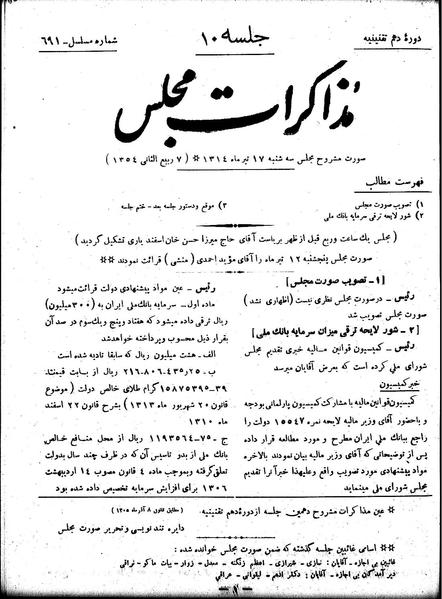 دورۀ دهم تقنینیه
جلسه ۱۰
شماره مسلسل - ۶۹۱
مذاکرات مجلس
صورت مشروح مجلس سه شنبه ۱۷ تیرماه ۱۳۱۴ * ( ۷ ربیع الثانی ۱۳۵۴ )
فهرست مطالب
۱) تصویب صورت مجلس
۲) شور لایحه ترقی سرمایه بانک ملی
۳) موقع و دستور جلسه بعد - ختم جلسه
( مجلس یک ساعت و ربع قبل از ظهر بریاست آقای حاج میرزا حسن خان اسفندیاری تشکیل گردید )
صورت مجلس پنجشنبه ۱۲ تیرماه را آقای مؤید احمدی ( منشی ) قرائت نمودند **
[ ۱ - تصویب صورت مجلس ]
رئیس - در صورت مجلس نظری نیست ( اظهاری نشد )
صورت مجلس تصویب شد
[ ۲ - شور لایحه ترقی میزان سرمایه بانک ملی ]
رئیس - کمیسیون قوانین مالیه خبری تقدیم مجلس
شورای ملی کرده است که بعرض آقایان میرسد
خبر کمیسیون
کمیسیون قوانین مالیه با مشارکت کمیسیون پارلمانی بودجه
و با حضور آقای وزیر مالیه لایحه نمره ۱۵۵۴۷ دولت را
راجع ببانک ملی ایران مطرح و مورد مطالعه قرار داده
پس از توضیحاتی که آقای وزیر مالیه بیان نمودند بالاخره
مواد پیشنهادی مورد تصویب واقع و علیهذا خبر آنرا تقدیم
مجلس شورای ملی مینماید
رئیس - عین مواد پیشنهادی دولت قرائت میشود
ماده اول - سرمایه بانک ملی ایران به (۳۰۰ میلیون)
ریال ترقی داده میشود که هفتاد و پنج و یک سوم در صد آن
بقرار ذیل محسوب و پرداخته خواهد شد
الف - هشت میلیون ریال که سابقا تادیه شده است
ب - ۲۱۶۸۰۶۴۳۵٫۲۵ ریال از بابت قیمت
۱۵۸۷۵۳۹۵٫۳۹ گرام طلای خالص دولت ( موضوع
قانون ۲۰ شهریور ماه ۱۳۱۳ ) بشرح قانون ۲۲ اسفند
ماه ۱۳۱۰
ج - ۱۱۹۳۵۶۴٫۷۵ ریال از محل منافع خالص
بانک ملی از بدو تاسیس آن که در ظرف چند سال بدولت
تعلق گرفته و بموجب ماده ۴ قانون مصوب ۱۴ اردیبهشت
۱۳۰۶ برای افزایش سرمایه تخصیص داده شده بود
* عین مذاکرات مشروح دهمین جلسه از دورۀ دهم تقنینیه . ( مطابق قانون ۸ آذر ماه ۱۳۰۵ )
دایره تند نویسی و تحریر صورت مجلس
** اسامی غائبین جلسه گذشته که ضمن صورت مجلس خوانده شده :
غائبین بی اجازه - آقایان : نمازی - شیرازی - اعظم زنگنه - معدل - زوار - بیات ماکو - نراقی
دیر آمدگان بی اجازه - آقایان : دکتر ادهم - لیقوانی - عراقی